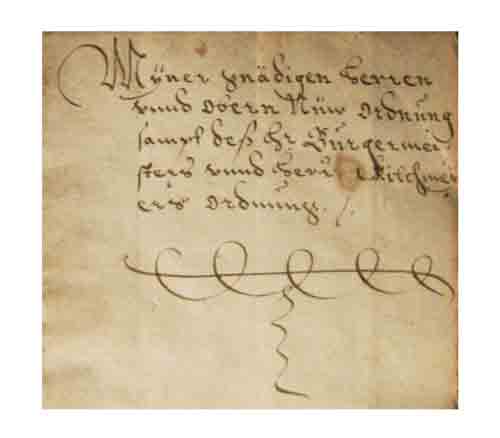 Myner gnädigen Herren
vnnd Obern Nüw Ordnung
sampt deß Hr. Burgermei
sters vnnd Herr Kilchmey
ers Ordnung.